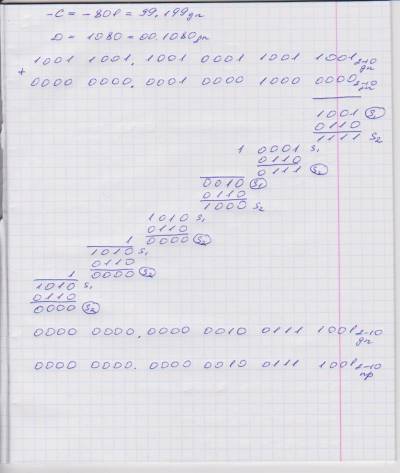 -C = -801 = 99.199дк
D = 1080 = 00.1080дк
1001 1001. 1001 0001 1001 1001 2-10 дк
+ 0000 0000. 0001 0000 1000 0000 2-10 дк
1001 S1
0110
1111 S2
1 0001 S1
0110
0111 S2
0010 S1
0110
1000 S2
1010 S1
0110
0000 S2
1
1010 S1
0110
0000 S2
1
1010 S1
0110
0000 S2
0000 0000. 0000 0010 0111 1001 2-10 дк
0000 0000. 0000 0010 0111 1001 2-10 пр